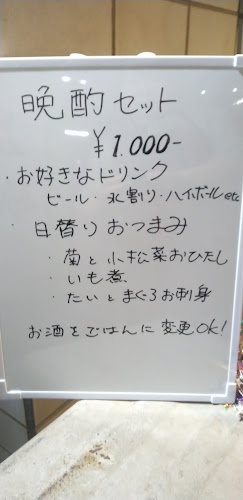 晩酌セット
¥1.000-
・お好きなドリンク
ビール・水割り・ハイボール etc
・日替りおつまみ
・菊と小松菜おひたし
・いも煮、
・たいとまぐろお刺身
お酒をごはんに変更OK!